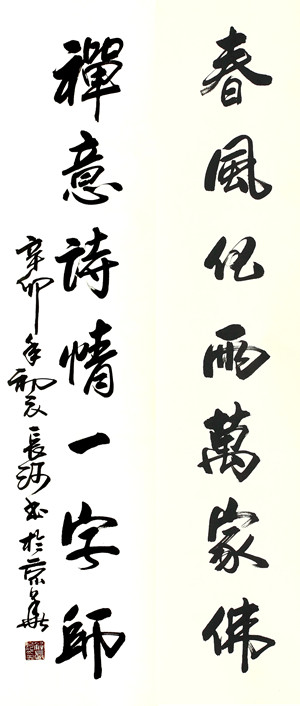 春風化雨萬家佛
禪意詩情一字師
辛卯年初夏長書於京華